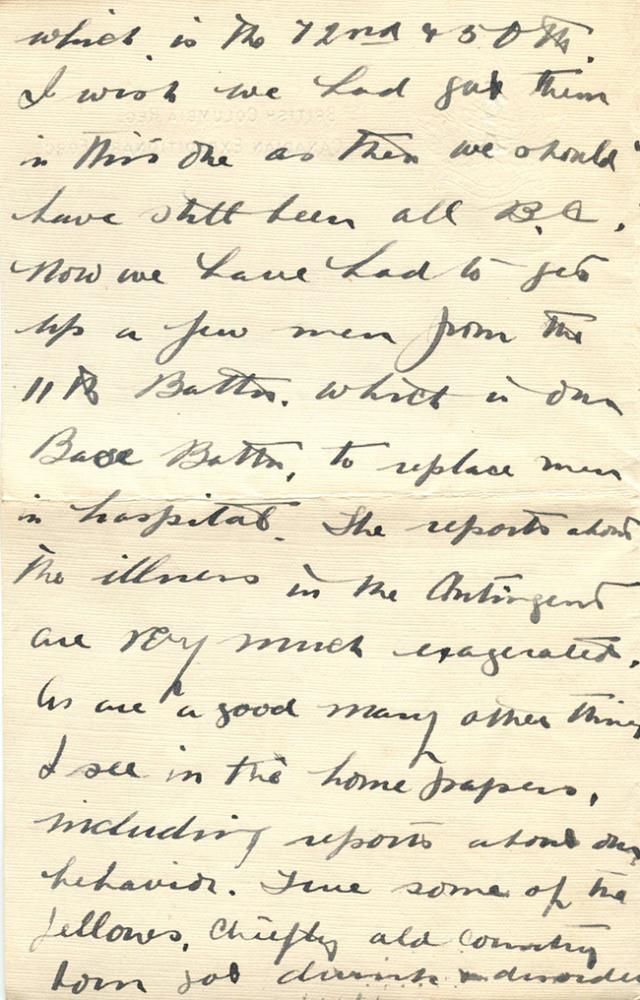 which is the 72nd & 50th.
I wish we had got them
in this one as then we should
have still been all B.C.
Now we have had to get
up a few men from the
11th Battn. which is our
Base Battn, to replace men
in hospital. The reports about
the illness in the Contingent
are very much exagerated,
As are a good many other things
I see in the home papers,
including reports about our
behavior. True some of the
fellows, chiefly old country
born got drunk & disorder
BRITISH COLUMBIA REGT
CANADIAN EXPEDITIONARY FORCE